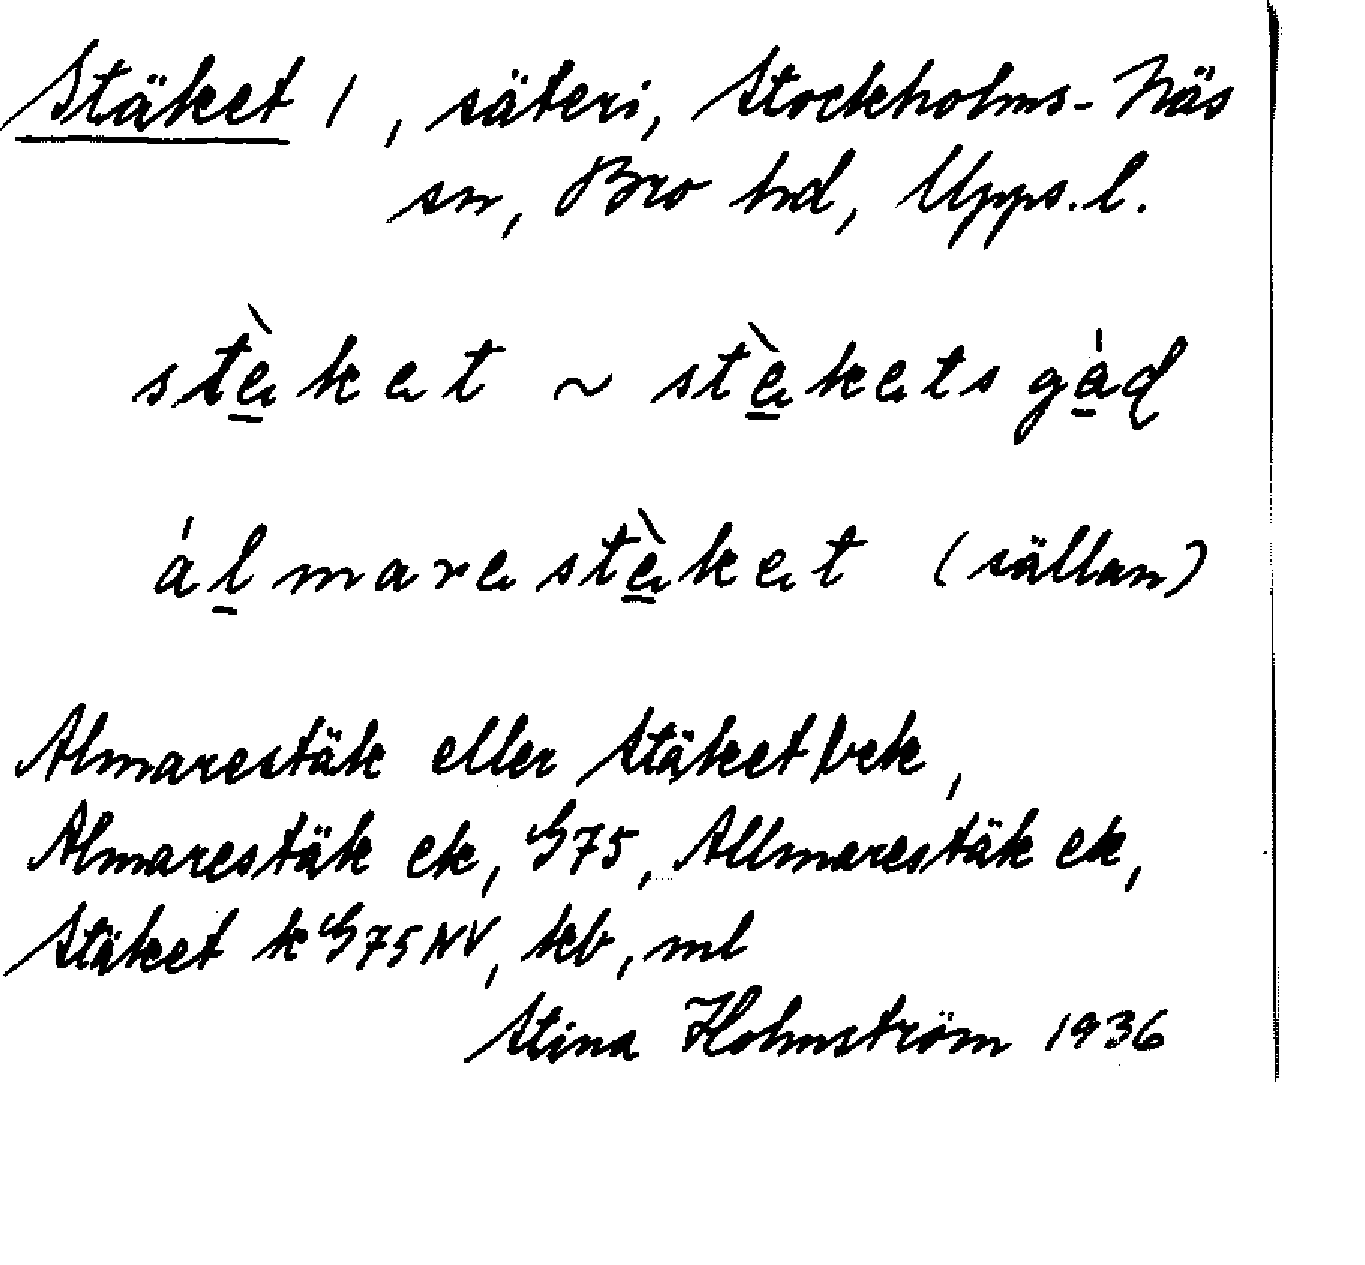 Stäket 1, säteri, Stockholms-Näs
sn, Bro hd, Upps.l.
stè̱ket ~ stè̱ketsgá̱d
áḻmarestè̱ket (sällan)
Almarestäk eller Stäket bek,
Almarestäk ek, G75, Allmarestäk ek,
Stäket k G75NV, kb, ml
Stina Holmström 1936